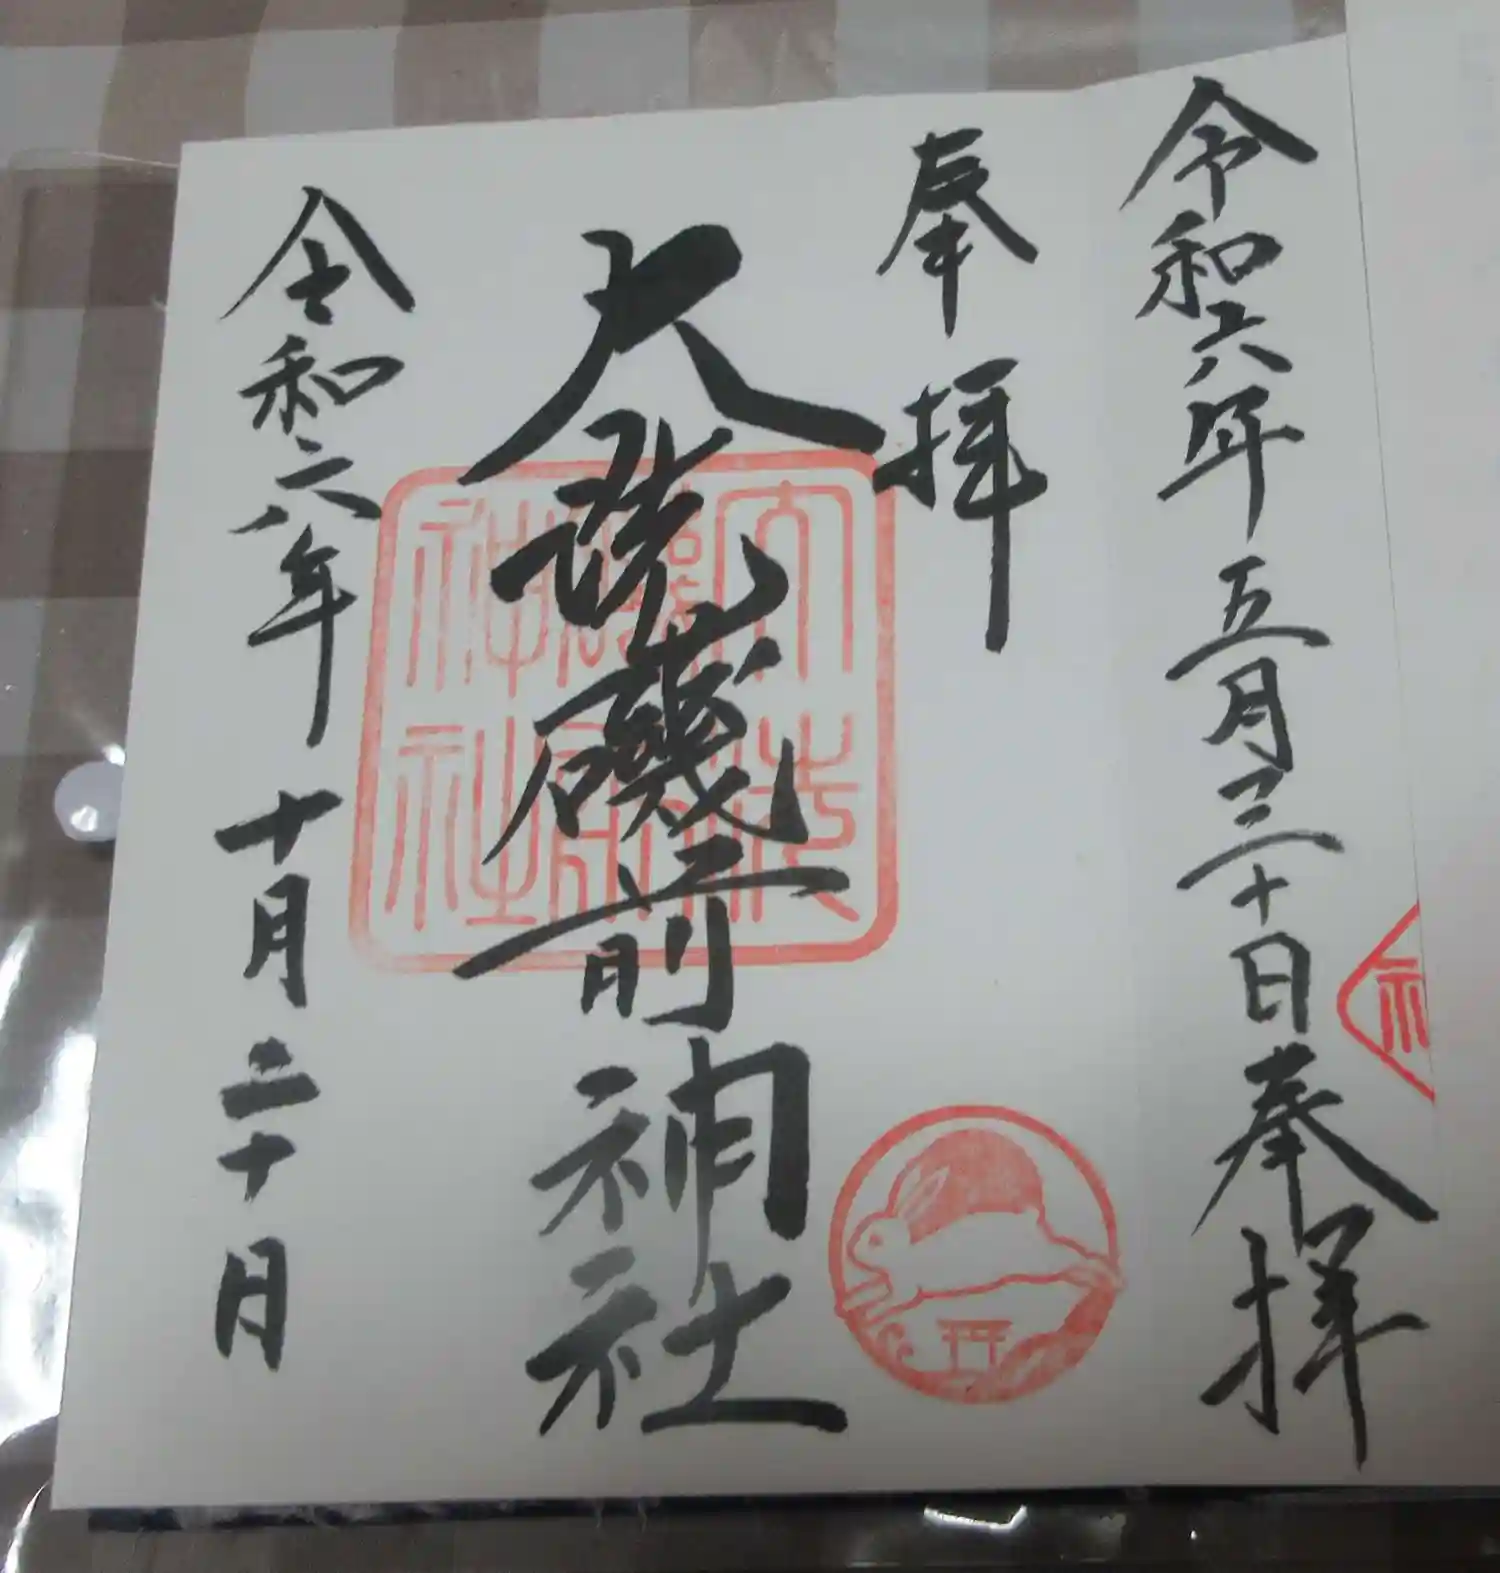 令和六年五月三十日奉拝
奉拝
大洗磯前神社
大洗磯前神社
令和六年十月二十日